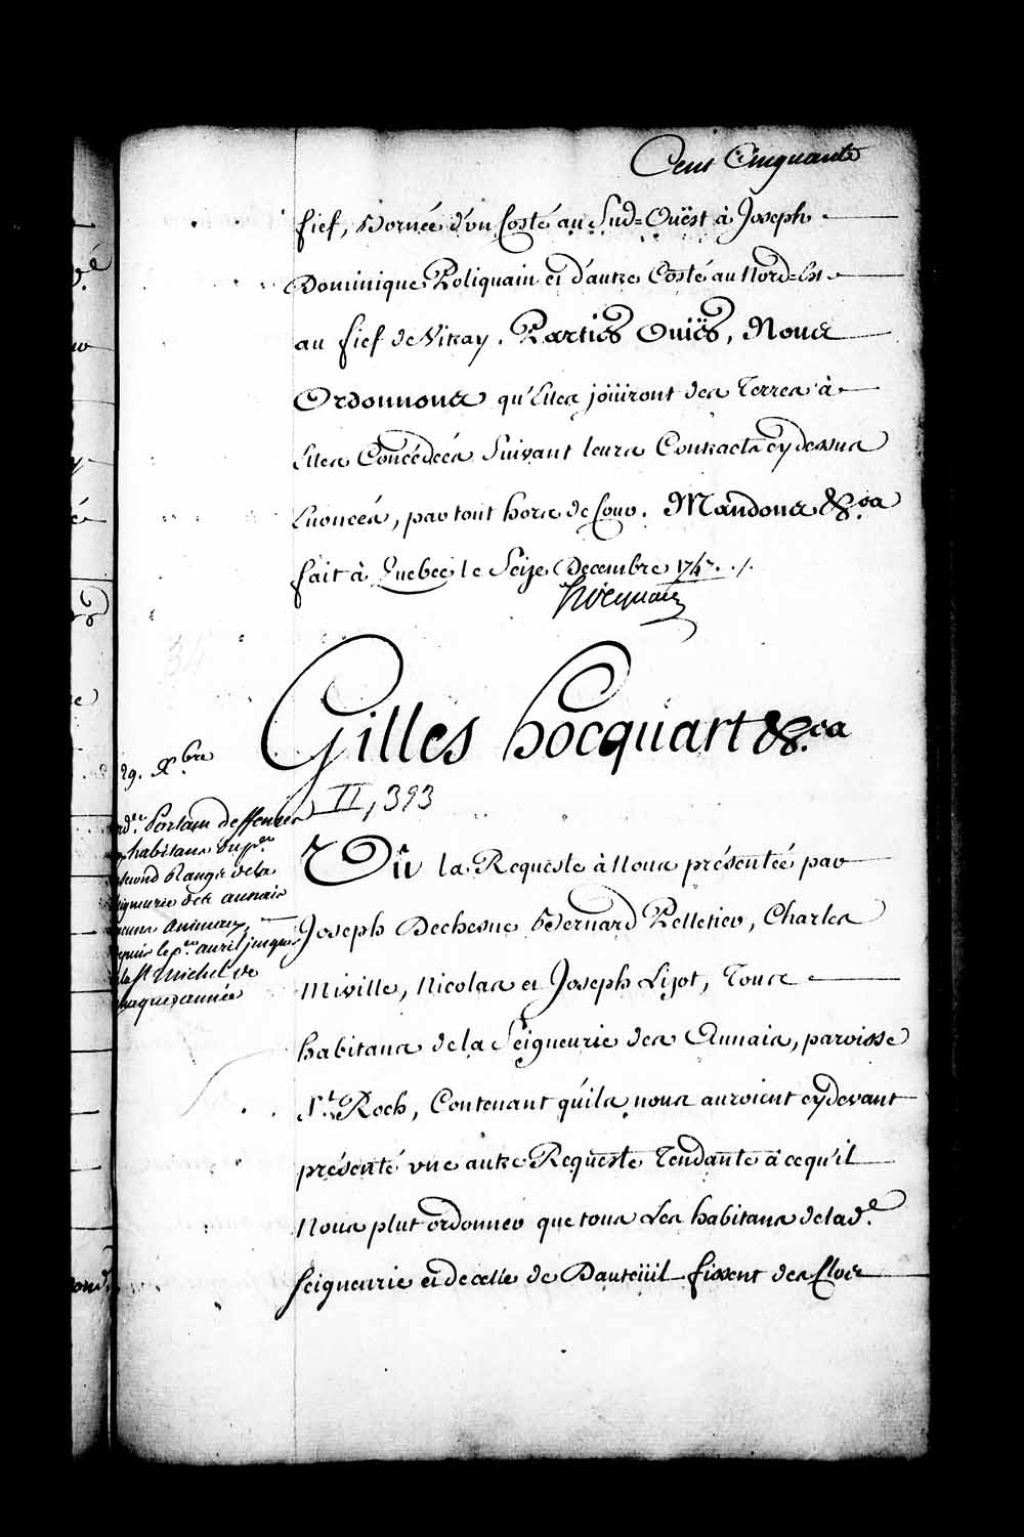 Cent Cinquante
fief, Bornée d'un Costé au Sud=Oüest à Joseph
Dominique Poliquain et d'autre Costé au Nord=Est
au fief de Vitray. Parties Ouïës, Nous
Ordonnons qu'Elles joüiront des Terres à
Elles Concédées Suivant leurs Contracts cydessus
Enoncés, par tout hors de Cour. Mandons &.ca
fait à Quebec le Seize Decembre 174
hocquart
Gilles hocquart &.ca
II, 393
29. X.bre
ord.ce Portant deffenses
habitans du p.er
second Rangs de la
seigneurie des aunais
aucuns animaux,
depuis le p.er avril jusques
à la St Michel de
chaque année
Vû la Requeste à Nous présentée par
Joseph Dechesne, Bernard Pelletier, Charles
Miville, Nicolas et Joseph Lizot, Tous
habitans de la Seigneurie des Aunais, paroisse
St. Roch, Contenant qu'ils nous auroient cydevant
présenté une autre Requeste Tendante à ce qu'il
Nous plut ordonner que tous Les habitans de lad.e
seigneurie et de celle de Dauteüil fissent des Clos